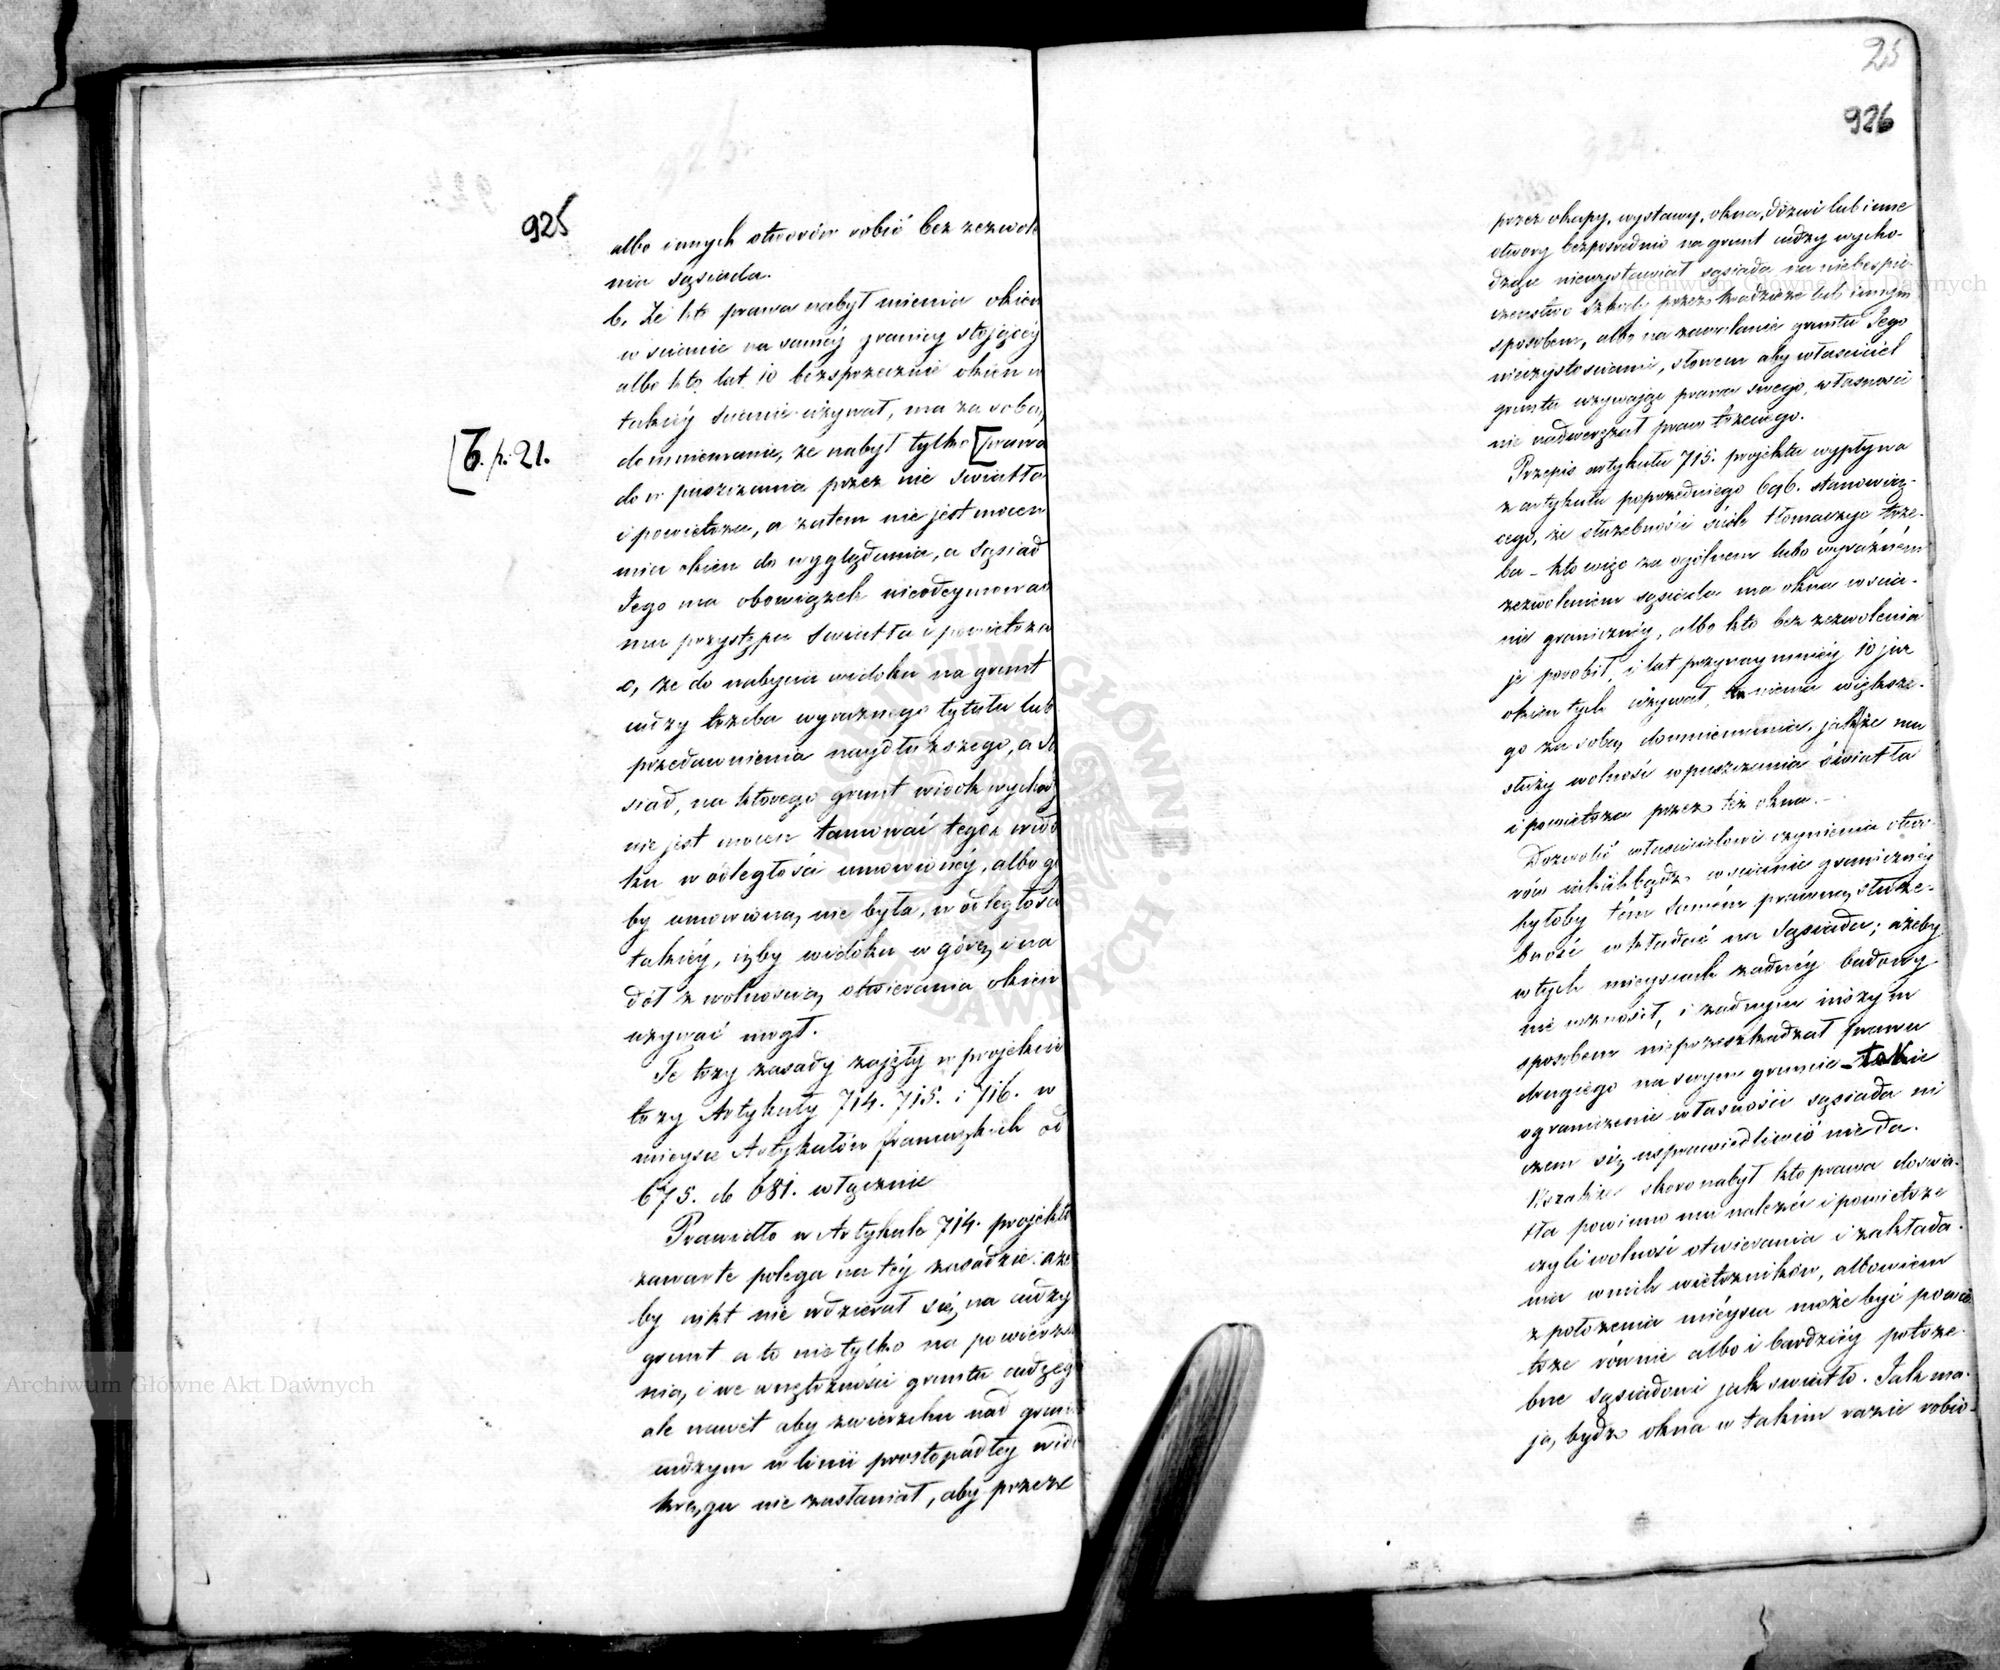 925
albo innych otworów robić bez zezwole
nia sąsiada.
b, Że kto prawa nabył mienia okien
w scianie na saméy granicy stojącéy
albo kto lat 10 bezsprzecznie okien w
takiéy scianie używał, ma za sobą
domniemanie, że nabył tylko [prawa
[T. p. 21.
do w puszczania przez nie światła
i powietrza, a zatem nie jest mocen
mieć okien do wyglądania, a Sąsiad
Jego ma obowiązek nieodeymować
mu przystępu światła i powietrza
c, że do nabycia widoku na grunt
cudzy trzeba wyraznego tytułu lub
przedawnienia naydłuższego, a Są
siad, na którego grunt widok wychodzi
nie jest mocen tamować tegoż wido
ku w odległości umowionéy, albo gd
by umowioną nie była, w odległości
takiéy, iżby widoku w górę i na
dół z wolnością otwierania okien
używać mógł.
Te trzy zasady zajęły w projekcie
trzy Artykuły 714. 715. i 716. w
mieysce Artykułów francuzkich od
675. do 681. włącznie
Prawidło w Artykule 714. projektu
zawarte polega na téy zasadzie: aże
by nikt nie wdzierał się na cudzy
grunt a to nie tylko na powierzch
nią, i we wnętrzności gruntu cudzego
ale nawet aby zwierzchu nad gruntem
cudzym w linii prostopadłéy wido
kręgu nie zasłaniał, aby przeze
25
926
przez okapy, wystawy, okna, drzwi lub inne
otwory bezposrednio na grunt cudzy wycho-
dzące niewystawiał sąsiada na niebespie-
czenstwo szkody przez kradzieże lub innym
sposobem, albo na zawalanie gruntu Jego
nieczystosciami, słowem aby własciciel
gruntu używając prawa swego własnosci
nie nadwerężał praw trzeciego.
Przepis artykułu 715. projektu wypływa
z artykułu poprzedniego 696. stanowią-
cego, że służebności ściśle tłomaczyć trze-
ba – kto więc za ogólnem lubo wyraźném
zezwoleniem sąsiada ma okna w scia-
nie granicznéy, albo kto bez zezwolenia
je porobił, i lat przynaymniéy 10 już
okien tych używał, niema większe-
go za sobą domniemania, jak że mu
służy wolność wpuszczania światła
i powietrza przez też okna. –
Dozwolić własicielowi czynienia otwo-
rów jakichbądź w scianie granicznéy
byłoby tém samém prawną służe-
bność wkładać na Sąsiada; ażeby
w tych mieyscach żadnéy budowy
nie wznosił, i żadnym inszym
sposobem nieprzeszkadzał prawu
drugiego na swym gruncie – takie
ograniczenie własności sąsiada ni
czem się usprawiedliwić nie da.
Wszakże skoro nabył kto prawa do swia-
tła powinno mu należeć i powietrze
czyli wolność otwierania i zakłada-
nia w nich wietrzników, albowiem
z położenia mieysca może być powie
trze równie albo i bardziéy potrze-
bne sąsiadowi jak swiatło. Jak ma-
ją bydź okna w takim razie robio-